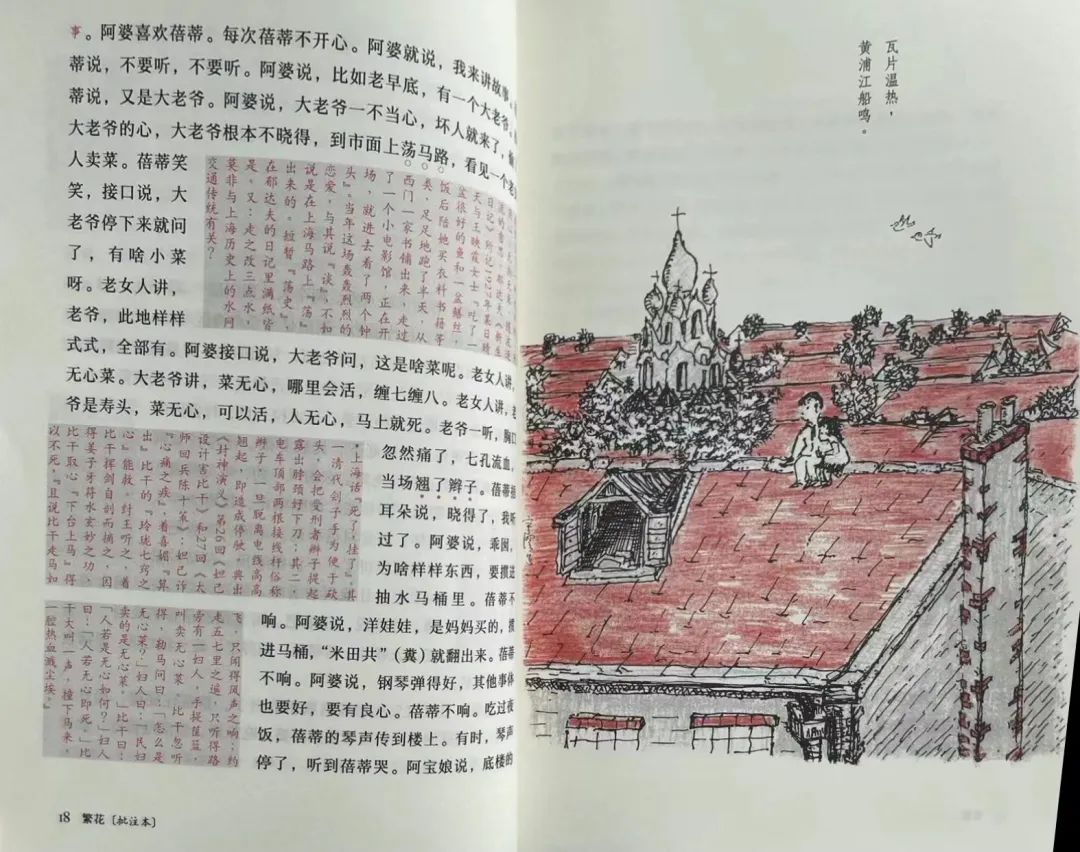 事。阿婆喜欢蓓蒂。每次蓓蒂不开心。阿婆就说，我来讲故事。
蒂说，不要听，不要听。阿婆说，比如老早底，有一个大老爷。
蒂说，又是大老爷。阿婆说，大老爷一不当心，坏人就来了，偷
大老爷的心，大老爷根本不晓得，到市面上荡马路，看见一个老
人卖菜。蓓蒂笑
笑，接口说，大
老爷停下来就问
了，有啥小菜
呀。老女人讲，
老爷，此地样样
日记》所记1927年某日晚
天与王映霞女士“吃了一
盆很好的鱼和一盆鳝丝，
饭后陪她买衣料书籍等
类，足足地跑了半天，从
西门一家书铺出来，走过
了一个小电影馆，正在开
场，就进去看了两个钟
头”。当年这场轰轰烈烈的
恋爱，与其说“谈”，不如
说是在上海马路上“荡”
出来的。拉暂“荡史”，
在郁达夫的日记里满纸皆
是。又：走之改三点水，
莫非与上海历史上的水网
交通传统有关？
式式，全部有。阿婆接口说，大老爷问，这是啥菜呢。老女人讲，
无心菜。大老爷讲，菜无心，哪里会活，缠七缠八。老女人讲，老
爷是寿头，菜无心，可以活，人无心，马上就死。老爷一听，胸口
忽然痛了，七孔流血，
当场翘了辫子。蓓蒂捂
耳朵说，晓得了，我听
过了。阿婆说，乖囡，
为啥样样东西，要掼进
抽水马桶里。蓓蒂不
响。阿婆说，洋娃娃，是妈妈买的，掼
进马桶，“米田共”（粪）就翻出来。蓓蒂
不响。阿婆说，钢琴弹得好，其他事体
也要好，要有良心。蓓蒂不响。吃过夜
饭，蓓蒂的琴声传到楼上。有时，琴声
停了，听到蓓蒂哭。阿宝娘说，底楼的
上海话“死了”“挂了”。其
一，清代刽子手为便于砍
头，会把受刑者辫子提起
露出脖颈好下刀；其二，
电车顶部两根接线杆俗称
辫子，一旦脱离电线高高
翘起，即造成停驶。典出
《封神演义》第26回《妲己
设计害比干》和27回《太
师回兵陈十策》：妲己诈
“心痛之疾”，着喜媚“算
出”比干的“玲珑七窍之
心”能救，纣王听之，着
比干挥剑自剖而摘之，因
得姜子牙符水玄妙之功，
比干取心“下台上马”得
以不死“且说比干走马如
飞，只闻得风声之响；约
走五七里之遥，只听得路
旁有一妇人，手提筐篮，
叫卖无心菜。比干忽听
得，勒马问曰：‘怎么是
无心菜？’妇人曰：‘民妇
卖的是无心菜。’比干曰：
‘人若是无心如何？’妇人
曰：‘人若无心即死。’比
干大叫一声，撞下马来，
一腔热血溅尘埃。”
18 繁花〔批注本〕
瓦片温热，
黄浦江船鸣。